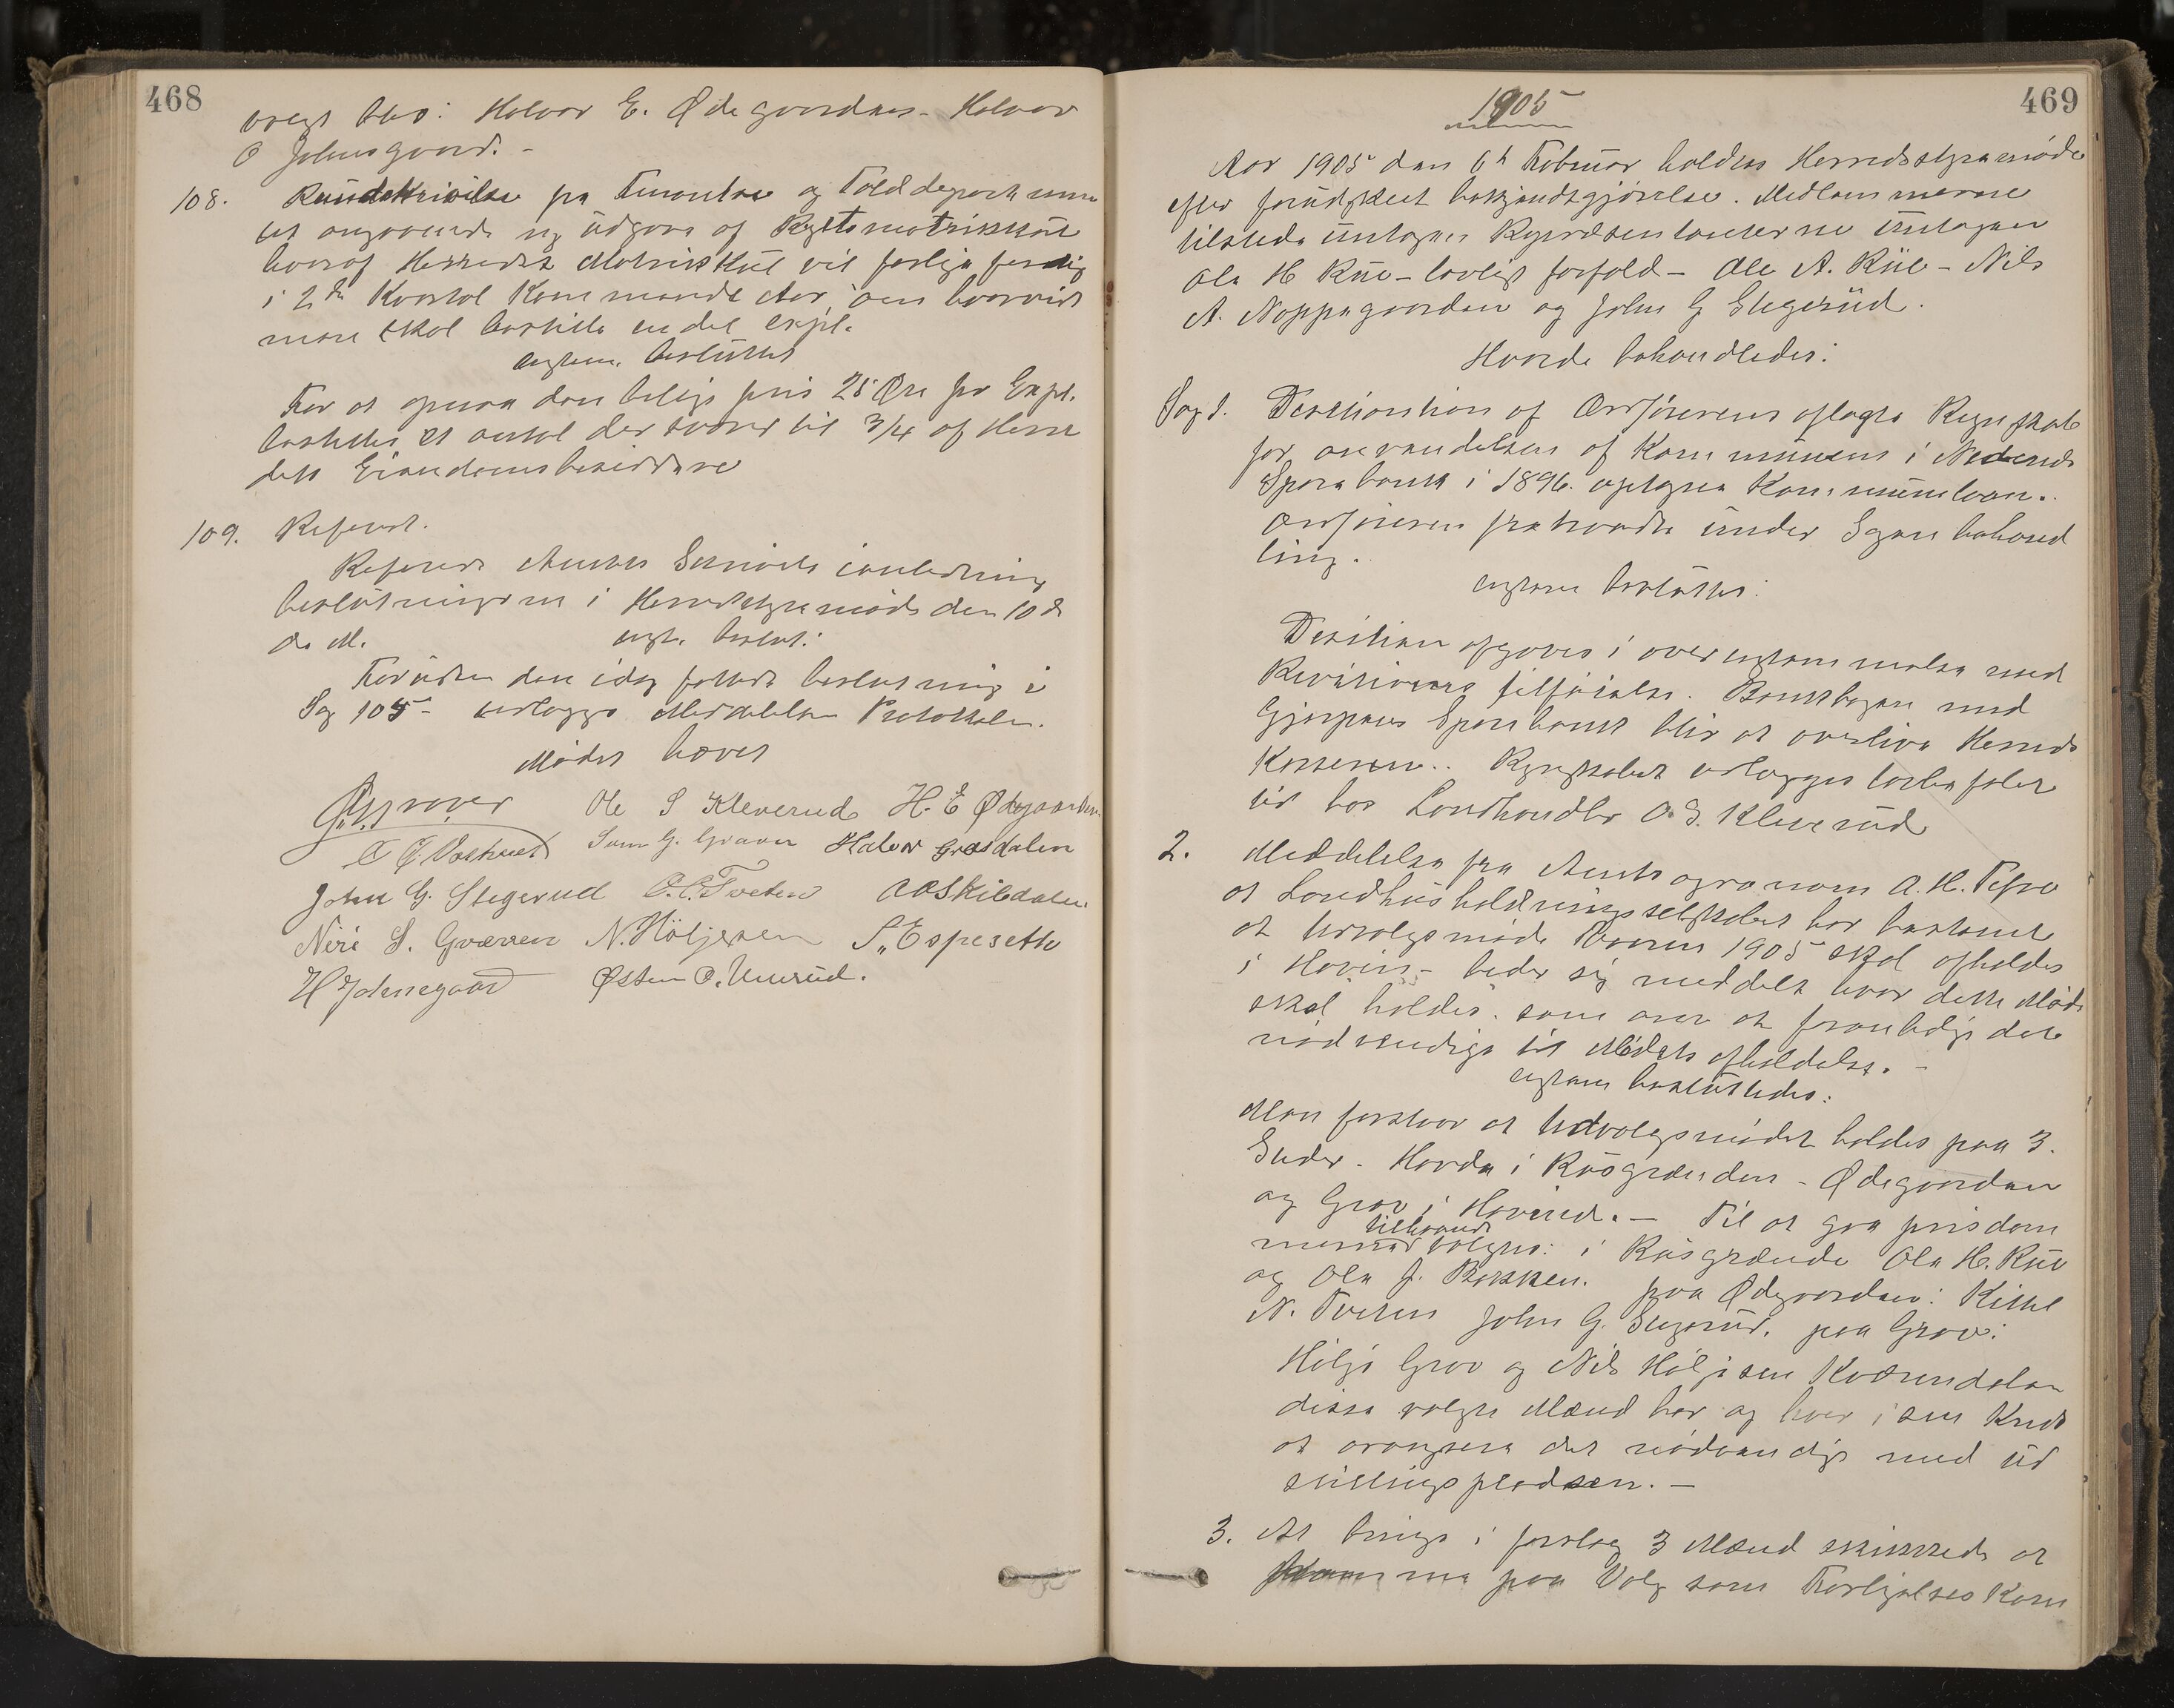 468
valgt blev: Halvor E. Ødegaardens - Halvor
O Johnsgaard. -
108. Rundskrivelse fra Finantse og Tolddepartemen
tet angaaende ny Udgave af Rigets matrikkul
hvoraf Herredets Matrikkul vil forligge ferdig
i 2det Kvartal Kommende Aar, om hvorvidt
man skal bestille en del expl.
enstem. besluttet
For at opnaa den billige pris 25 Øre pr Expl.
bestilles et antal der svarer til 3/4 af Herre
dets Eiendomsbesiddere
109. Referat.
Referert Amtets Skrivelse i anledning
beslutningerne i Herredstyremøde den 10de
ds M. enst. beslut:
Foruden den idag fattede beslutning i
Sag 105 - vedlægges Meddelelsen Protokollen.
Mødet hævet
Ole S Kleverud H. E Ødegaarden
Sam G. Graven Halvor Grosdalen
John G. Stegerud O. C. Tveten A O Skibdalen
Niri S. Græven N. Höljesen S. Espeseth
H Johnsgaard Østen O. Unerud.
1905
469
Aar 1905 den 6te Februar holdtes Herredsstyremøde
efter forudskeet bekjendtgjørelse. Medlemmerne
tilstede untagen Repræsentanterne untagen
Ole H Rue - lovligt forfald - Ole A. Rue - Nils
A. Noppegaarden og John G Stegerud.
Hvorda behandledes:
Sag 1. Desition af Ordførerens aflagte Regnskab
for anvendelsen af Kommunens i Nedenes
Sparebank i 1896. optagne Kommunelaan.
Ordføreren fratraadte under Sagens behand
ling.
enstem besluttet:
Desition afgaves i overenstemmelse med
Revisionens tilføielse. Bankbogen med
Gjerpens Sparebank blir at overlive Herreds
Kasseren.. Regnskabet udlægges lovbefalet
tid hos Landhandler O. S. Kleverud
2. Meddelelse fra Amtsagronom A. H. Tefre
at Landhusholdningsselskabet har bestemt
at Udvalgsmøde Vaaren 1905 skal afholdes
i Hovin - beder sig meddelt hvor dette Møde
skal holdes. som over at foranledige det
nødvendige til Mødets afholdelse. -
enstem besluttedes:
Man foreslaar at Udvalgsmødet holdes paa 3.
Steder. Hovda i Rusgrænden - Ødegaarden
og Grav i Hovind. - Til at gaa prisdom
merne tilhaande valgtes: i Rusgrænde Ole H. Rue
og Ole J. Bakken. paa Ødegaarden: Kittel
N. Tveten John G. Stegerud, paa Grav:
Hölje Grav og Nils Höljesen Kværndalen
disse valgte Mænd har og hver i sin Kreds
at arangsere det nødvendige med Ud
stillingspladsen. -
3. At bringe i forslag 3 Mænd skikkede at
Komme paa Valg som Forligelses Kom